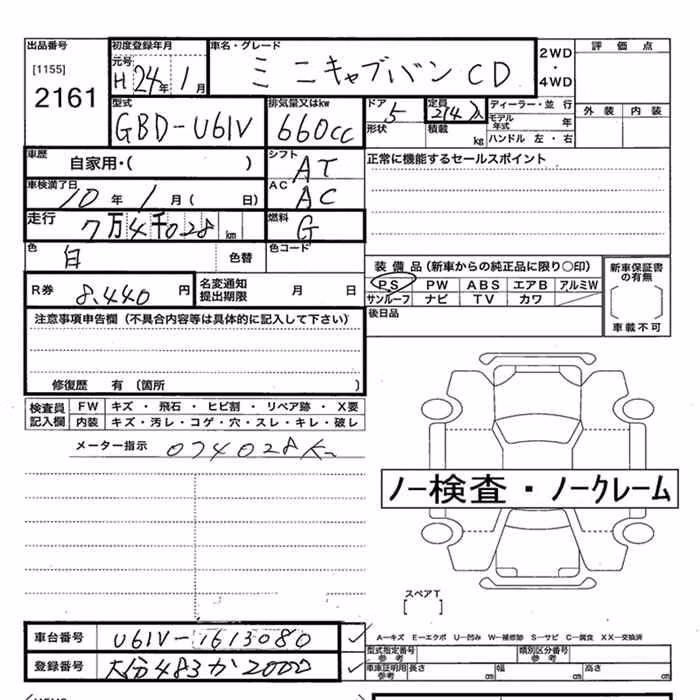 出品番号
[1155]
2161
初度登録年月
元号
H 24年 1月
車名・グレード
ミニキャブバン CD
2WD
・
4WD
評価点
外装 内装
型式
GBD-U61V
排気量又はkw
660cc
ドア
5
形状
定員
2/4人
積載
kg
ディーラー・並行
モデル年式 年
ハンドル 左・右
車歴
自家用・( )
シフト
AT
正常に機能するセールスポイント
車検満了日
10年 1月 ( 日)
AC
AC
走行
7万4千028 km
燃料
G
色
白
色替
色コード
装備品(新車からの純正品に限り〇印)
PS PW ABS エアB アルミW
サンルーフ ナビ TV カワ
新車保証書の有無
[ ]
車載不可
R券
8,440円
名変通知
提出期限 月 日
後日品
注意事項申告欄(不具合内容等は具体的に記入して下さい)
修復歴 有 〔箇所 〕
検査員記入欄
FW キズ・飛石・ヒビ割・リペア跡・X要
内装 キズ・汚レ・コゲ・穴・スレ・キレ・破レ
メーター指示 074028K
ノー検査・ノークレーム
スペアT
[ ]
車台番号
U61V-1613080
登録番号
大分483か2000
A-キズ E-エクボ U-凹み W-補修跡 S-サビ C-腐食 XX-交換済
型式指定番号 参考
類別区分番号 参考
車庫証明用 参考 長さ cm 幅 cm 高さ cm